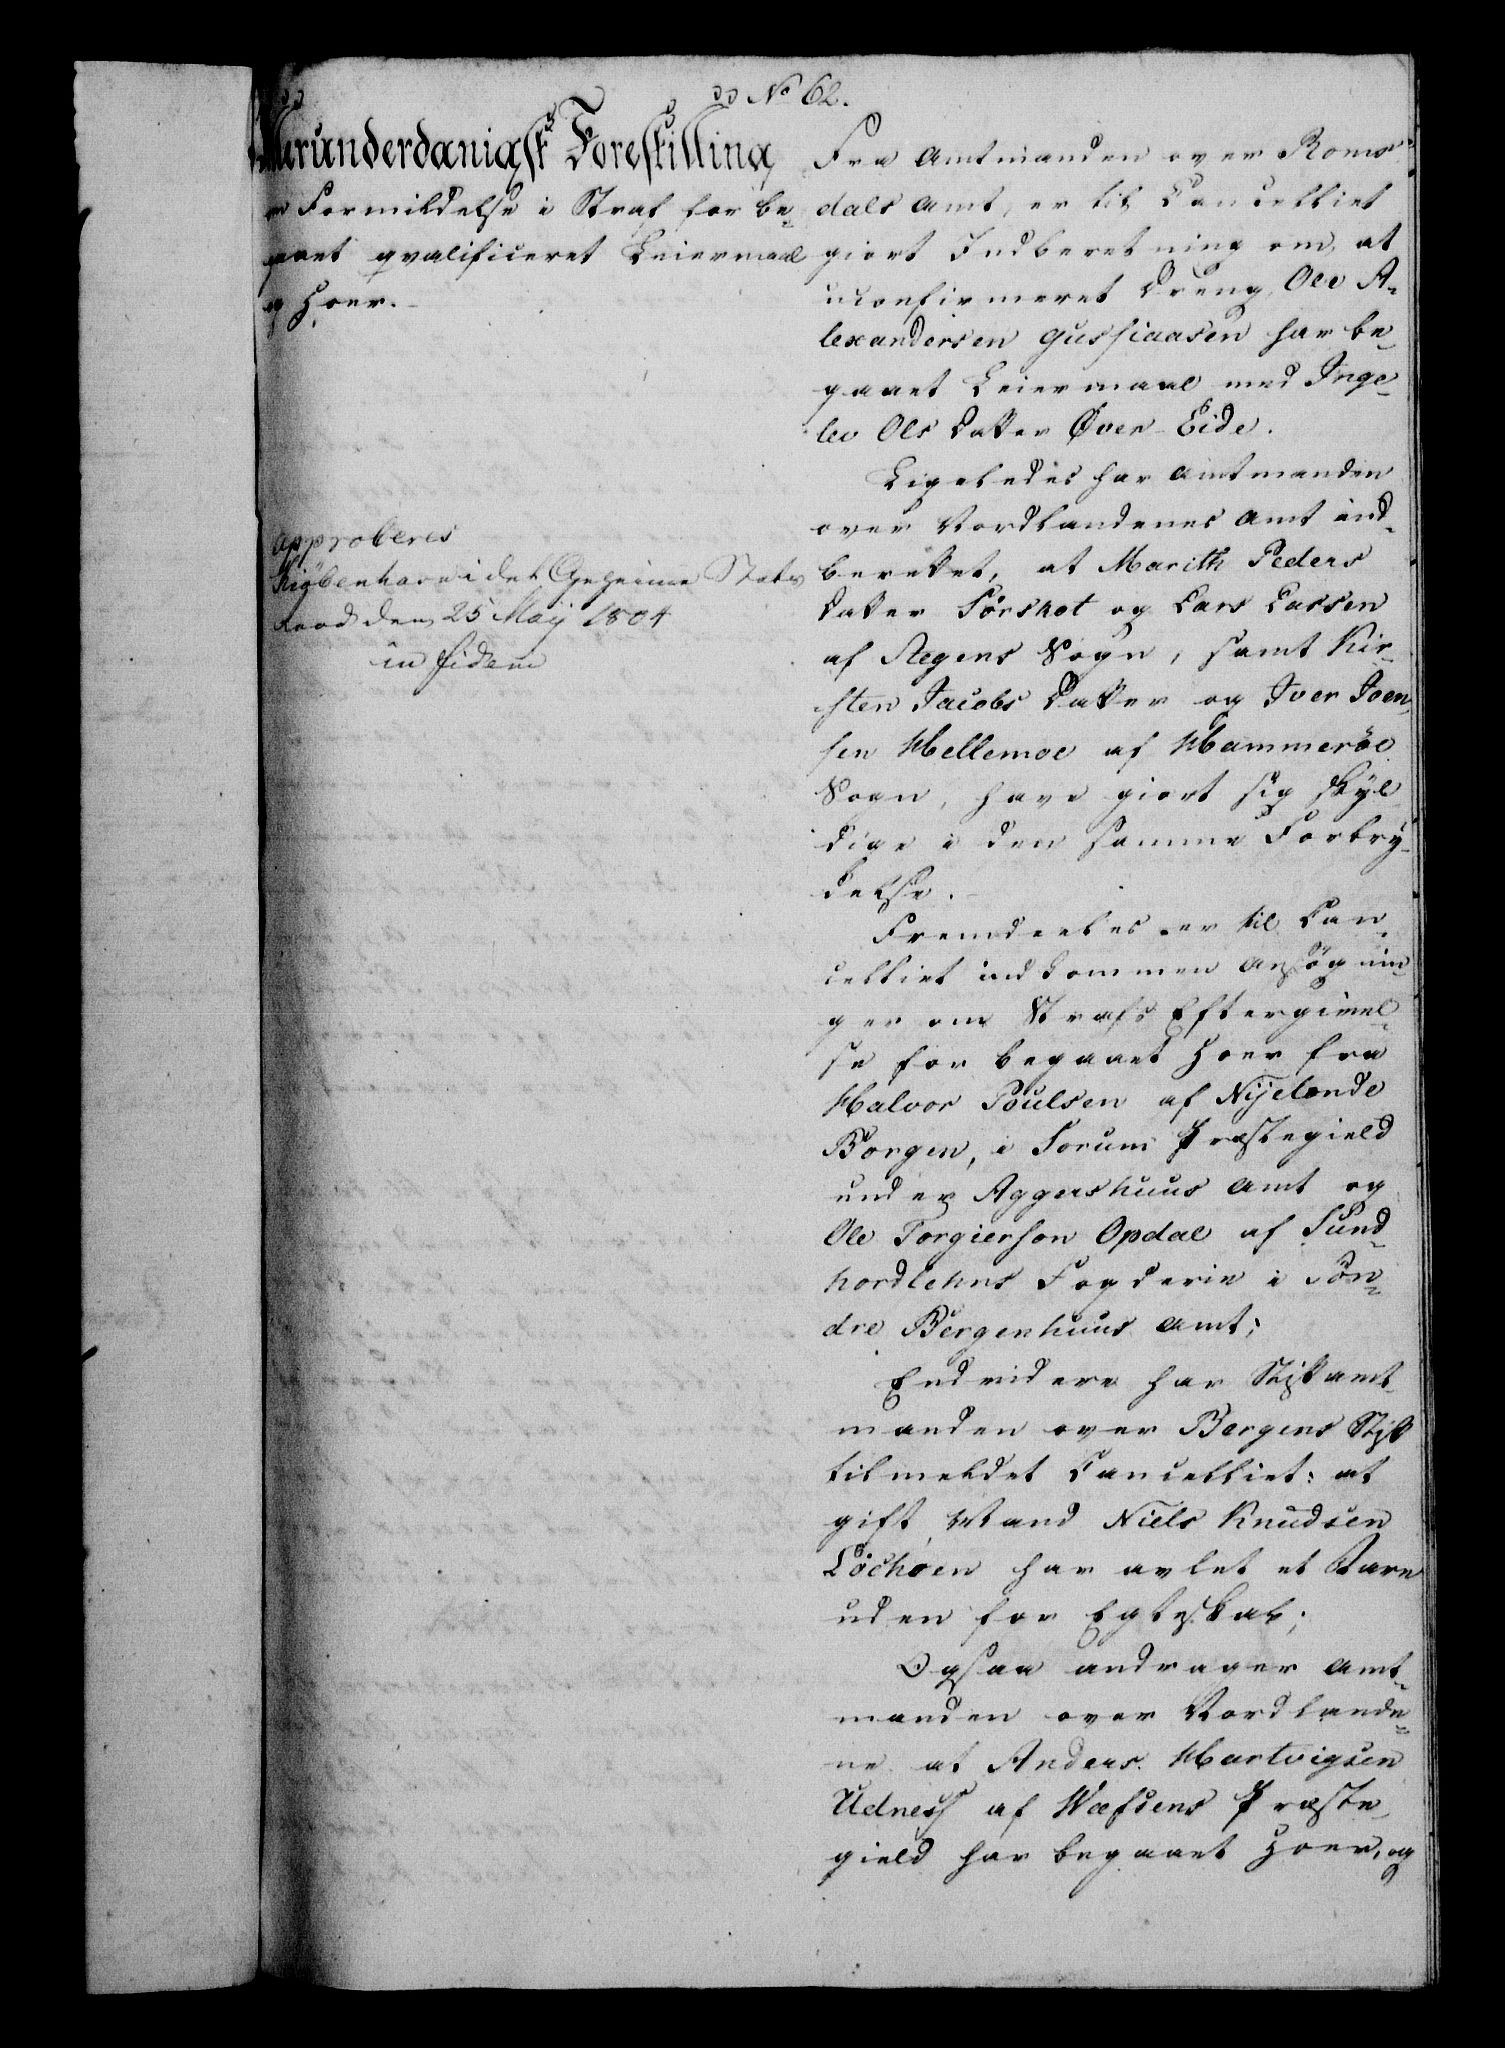 No 62.
Allerunderdanigst Forestilling
om Formildelse i Straf for be-
gaaet qvalificeret Leiermaal
og Hoer.
approberes
Kiöbenhavn i det Geheime Stats
Raad den 25 Maÿ 1804
in fidem
Fra Amtmanden over Roms-
dals Amt, er til Cancelliet
giort Indberetning om, at
uconfirmeret Dreng Ole A-
lexandersen Gussiaasen har be-
gaaet Leiermaal med Inge-
lev Ols Datter Øver-Eide.
Ligeledes har Amtmanden
over Nordlandenes Amt ind-
berettet, at Marith Peders
Datter Forshot og Lars Lassen
af Stegens Sogn, samt Kir-
sten Jacobs Datter og Iver Joen-
sen Hellemoe af Hammeröe
Sogn, have giort sig skyl
dige i den samme Forbry-
delse.
Fremdeeles er til Can-
celliet indkommen Ansögnin-
ger om Strafs Eftergivel-
se for begaaet Hoer fra
Halvor Poulsen af Nÿelænde
Borgen, i Sorum Præstegield
under Aggershuus Amt og
Ole Torgierson Opdal af Sund-
hordlehns Fogderie i Sön-
dre Bergenhuus Amt;
Endvidere har Stiftamt-
manden over Bergens Stift
tilmeldet Cancelliet: at
gift Mand Niels Knudsen
Löchoen har avlet et Barn
uden for Egteskab;
Ogsaa andrager Amt-
manden over Nordlande-
ne at Anders Hartvigsen
Udness af Wefsens Præste-
gield har begaaet Hoer, og